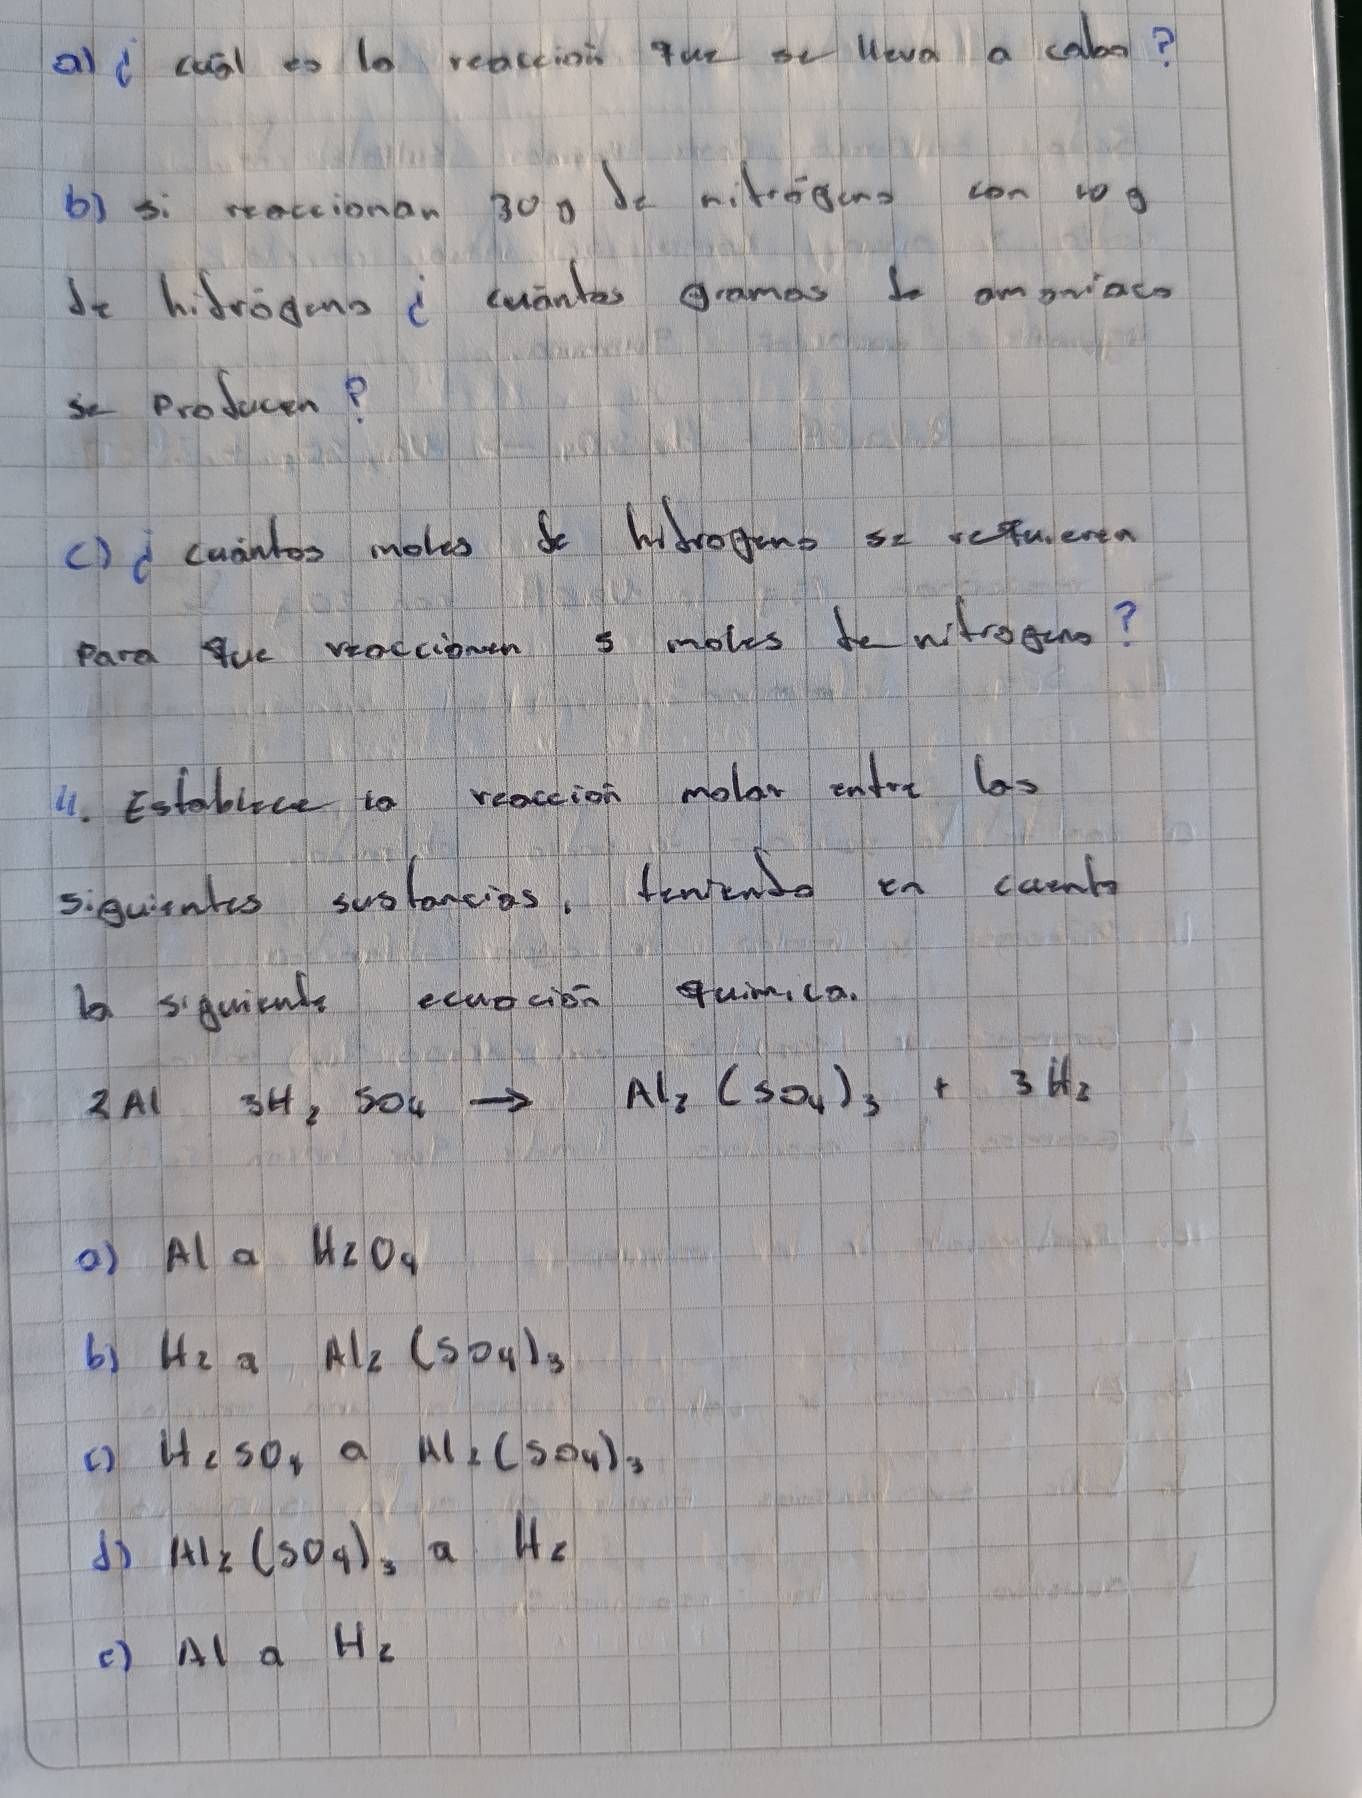 a) ¿ cuál es la reacción que se lleva a cabo?
b) si reaccionan 30 g de nitrógeno con 10 g
de hidrógeno ¿ cuántos gramos de amoniaco
se producen?
c) ¿ cuántos moles de hidrogeno se requieren
para que reaccionen 5 moles de nitrogeno?
4. Establece la reacción molar entre las
siguientes sustancias, teniendo en cuenta
la siguiente ecuación química.
2Al 3H₂ SO₄ → Al₂ (SO₄)₃ + 3H₂
a) Al a H2O4
b) H₂ a Al₂ (SO4)₃
c) H₂SO₄ a Al₂(SO4)₃
d) Al₂ (SO4)₃ a H₂
e) Al a H₂